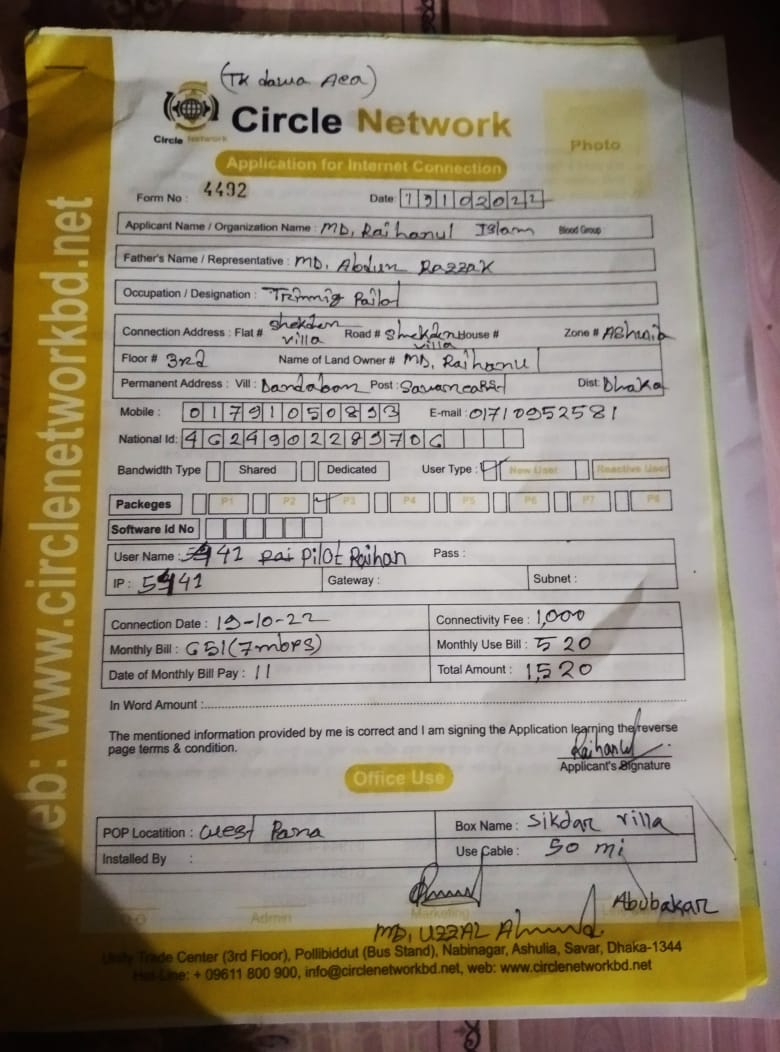 (TK dawa Aea)
Circle Network
Circle Network
Photo
Application for Internet Connection
Form No : 4492 Date 19102022
Applicant Name / Organization Name : MD, Raihanul Islam Blood Group :
Father's Name / Representative : MD, Abdur Razzak
Occupation / Designation :
Connection Address : Flat # Shekder villa Road # Shekder villa House # Zone # Ashulia
Floor # 3rd Name of Land Owner # MD, Raihanul
Permanent Address : Vill : Dandabor Post : Dist: Dhaka
Mobile : E-mail : 01710952581
National Id:
Bandwidth Type Shared Dedicated User Type : New User Reactive User
Packeges P1 P2 P3 P4 P5 P6 P7 P8
Software Id No
User Name : 41 Pilot Raihan Pass :
IP : 41 Gateway : Subnet :
Connection Date : 19-10-22 Connectivity Fee : 1,000
Monthly Bill : 651 (7mbps) Monthly Use Bill : 520
Date of Monthly Bill Pay : 11 Total Amount : 1,520
In Word Amount :
The mentioned information provided by me is correct and I am signing the Application learning the reverse
page terms & condition.
Raihanul
Applicant's Signature
Office Use
POP Locatition : West Para Box Name : Sikdar villa
Installed By : Use Cable : 50 mi
Abubakar
Admin Marketing
MD, UZZAL Ahmed
Unity Trade Center (3rd Floor), Pollibiddut (Bus Stand), Nabinagar, Ashulia, Savar, Dhaka-1344
Hot-Line: + 09611 800 900, info@circlenetworkbd.net, web: www.circlenetworkbd.net
web: www.circlenetworkbd.net